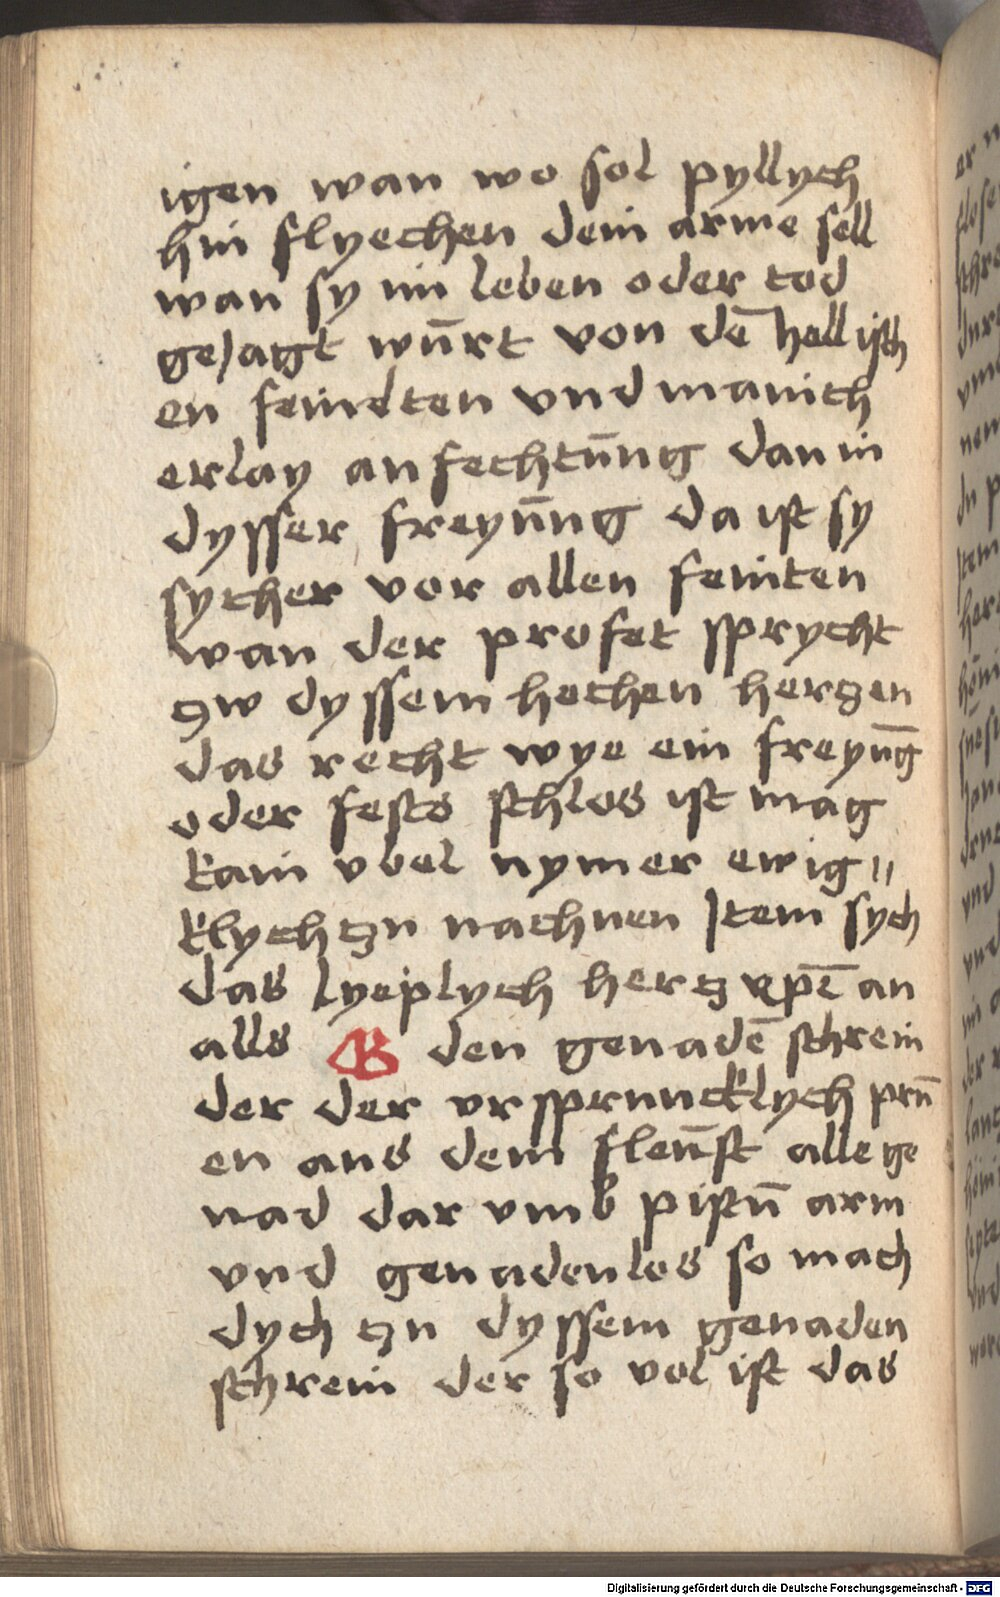 igen wan wo sol pyllych
hin flyechen dein arme sell
wan sy im leben oder tod
gejagt wūrt von dē hellisch
en feindten vnd manich
erlay anfechtūng dan in
dysser freyūng da ist sy
sycher vor allen feinten
wan der profet sprycht
zw dyssem hochen herzen
das recht wye ein freyūg
oder fests schlos ist mag
kain vbel nymer ewig〃
klych zu nachnen Item sych
das lyeplych herz xpī an
alls B den genadē schrein
der der vrspruncklych prūn
en aus dem fleūst alle ge
nad dar vmb pistū arm
vnd genadenlos so mach
dych zu dyssem genaden
schrein der so vol ist das
Digitalisierung gefördert durch die Deutsche Forschungsgemeinschaft - DFG